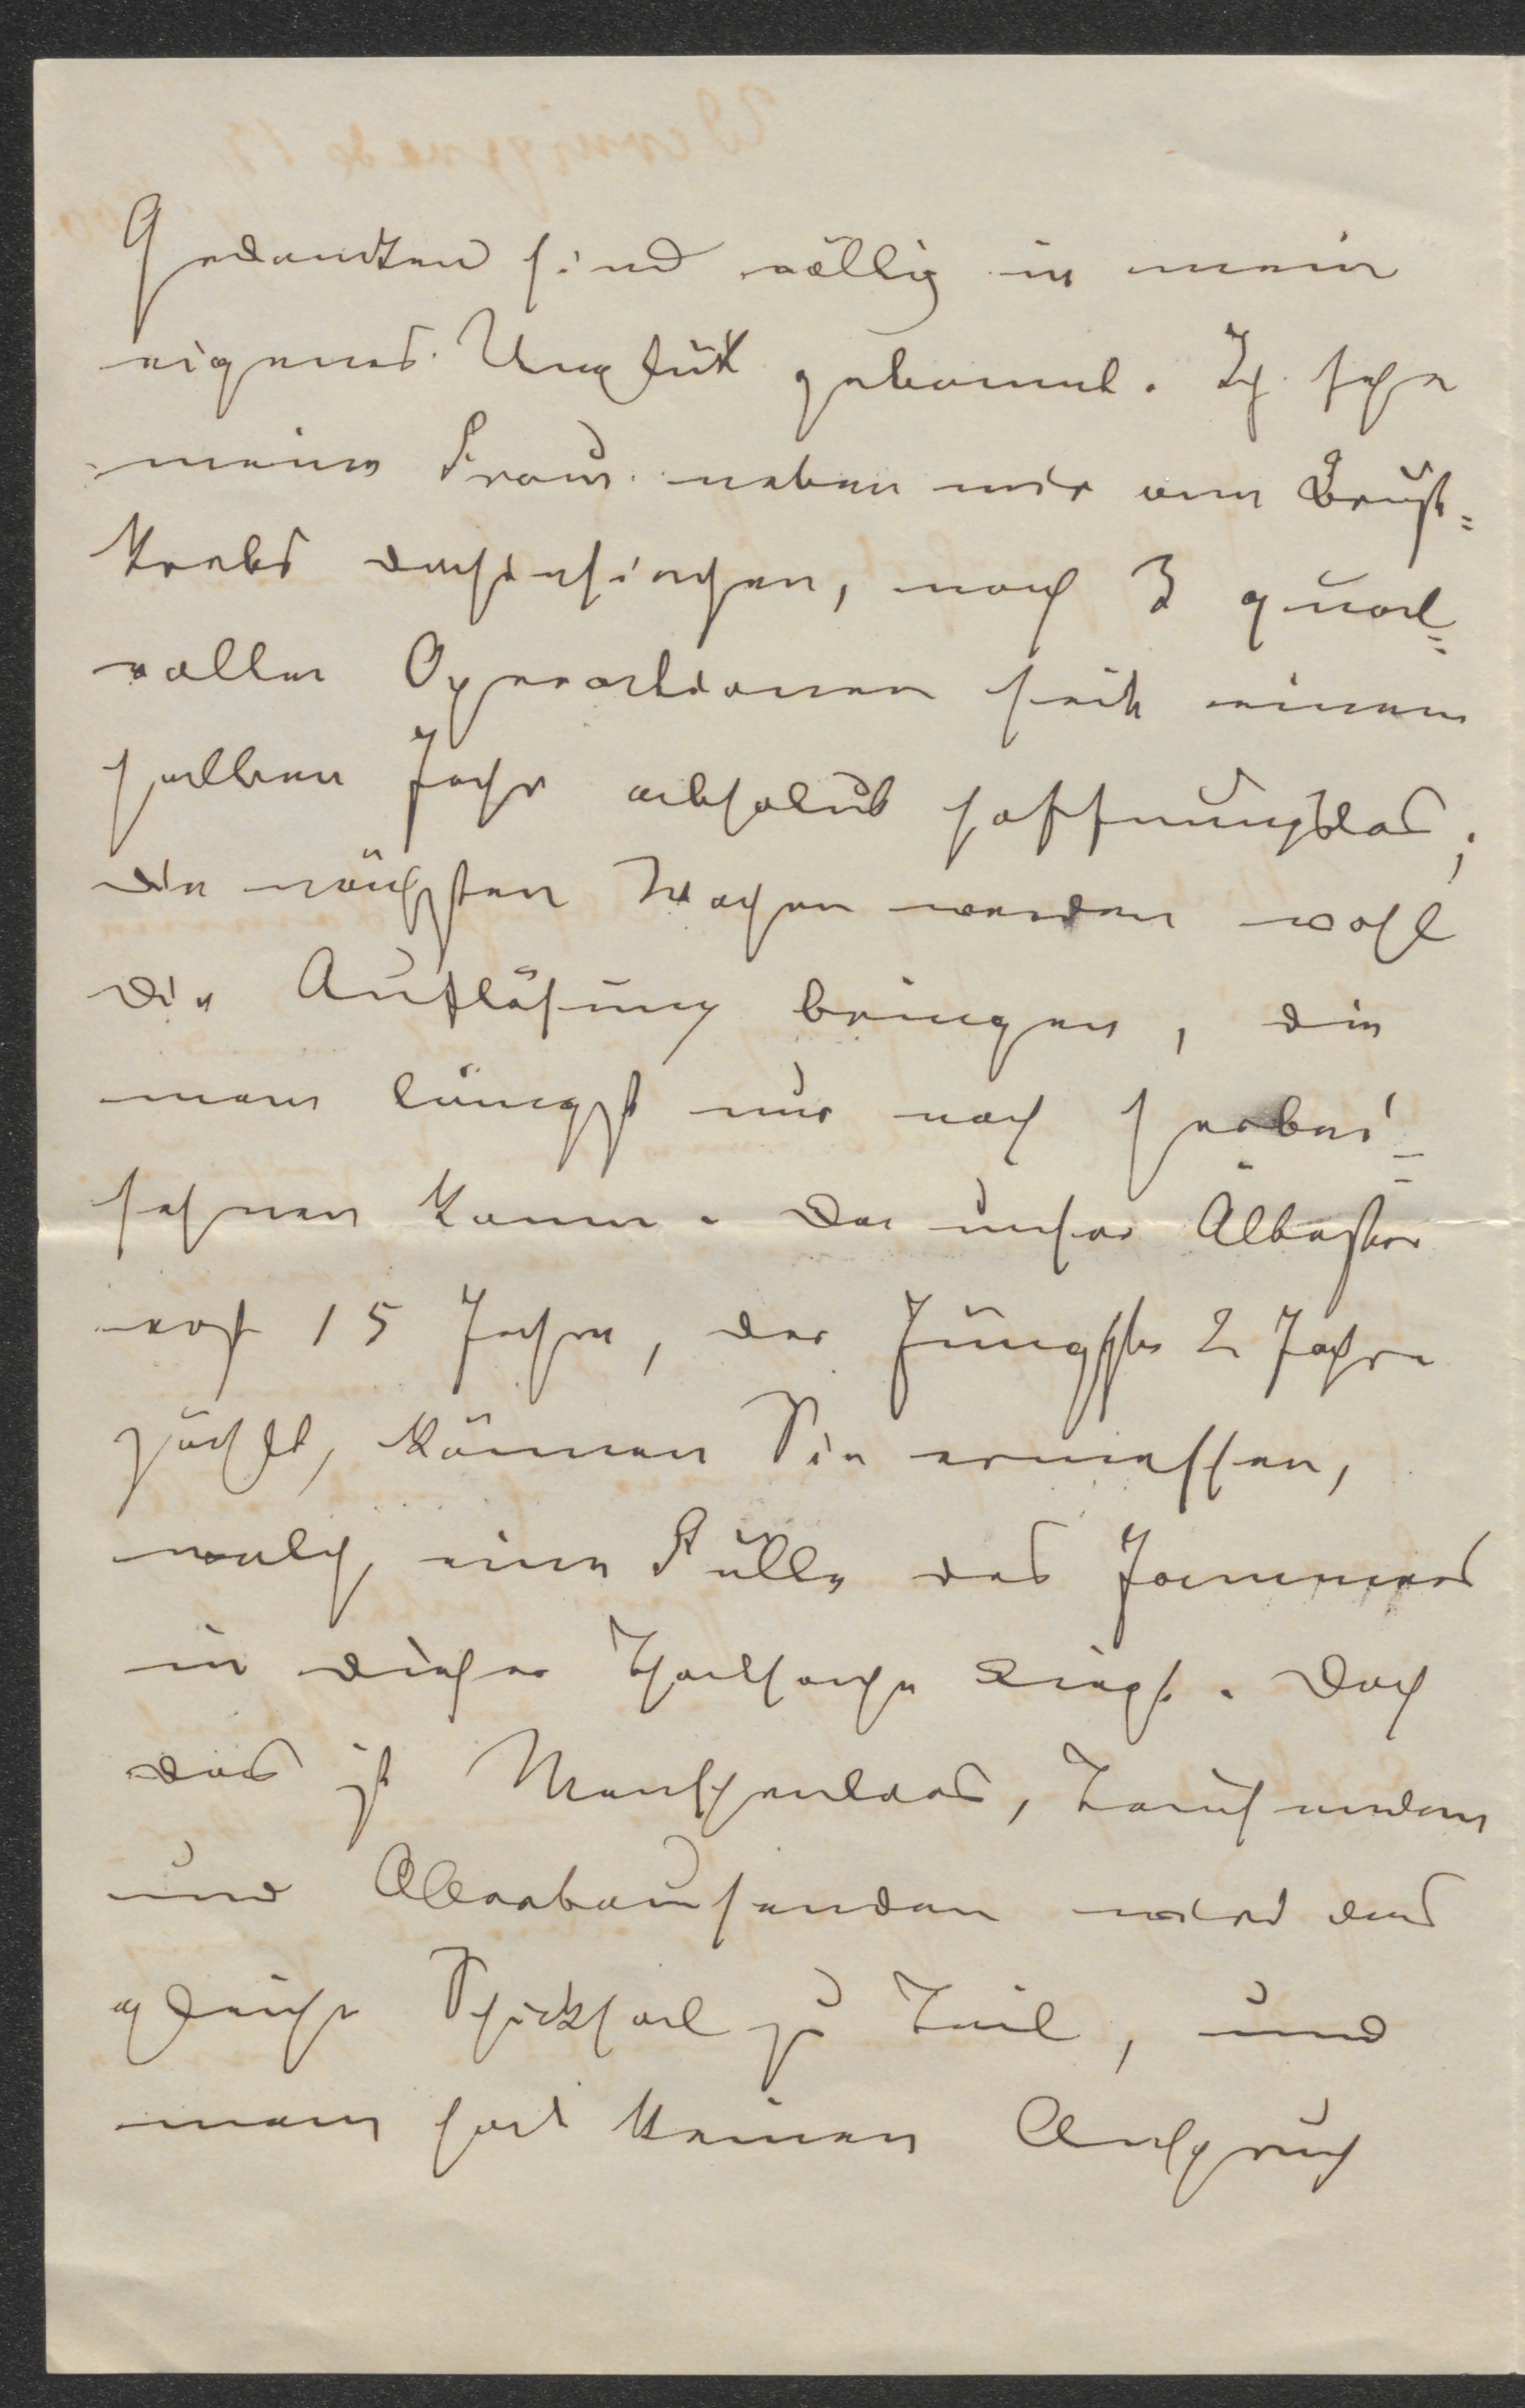 Gedanken sind völlig in mein
eigenes Unglück gebannt. Ich sehe
meine Frau neben mir am Brust-
krebs dahinsiechen, nach 3 qual-
vollen Operationen seit einem
halben Jahr absolut hoffnungslos;
die nächsten Wochen werden wohl
die Auflösung bringen, die
man längst nur noch herbei-
sehnen kann. Da unser Ältester
erst 15 Jahre, der Jüngste 2 Jahre
zählt, können Sie ermessen,
welch eine Fülle des Jammers
in dieser Thatsache liegt. Doch
das ist Menschenloos, Tausenden
und Abertausenden wird das
gleiche Schicksal zu Teil, und
man hat keinen Anspruch